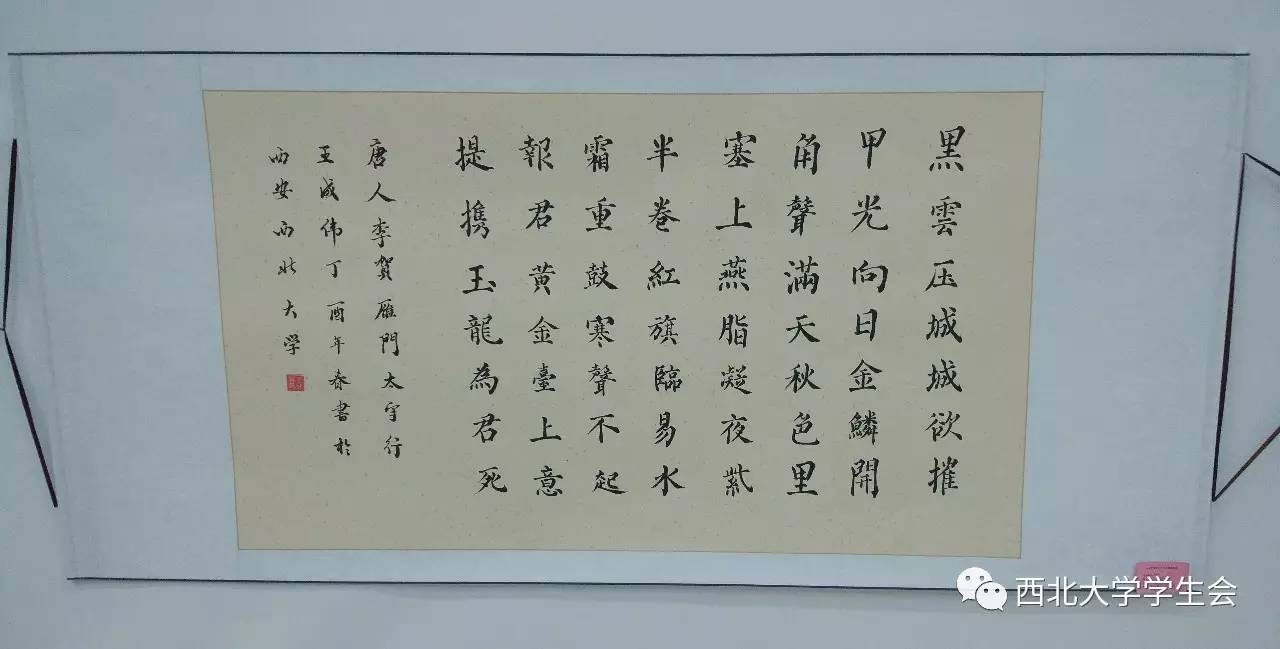 黑雲压城城欲摧
甲光向日金鳞開
角聲滿天秋色里
塞上燕脂凝夜紫
半卷紅旗臨易水
霜重鼓寒聲不起
報君黄金臺上意
提携玉龍為君死
唐人李贺雁門太守行
王成伟丁酉年春書於
西安西北大学
西北大学学生会